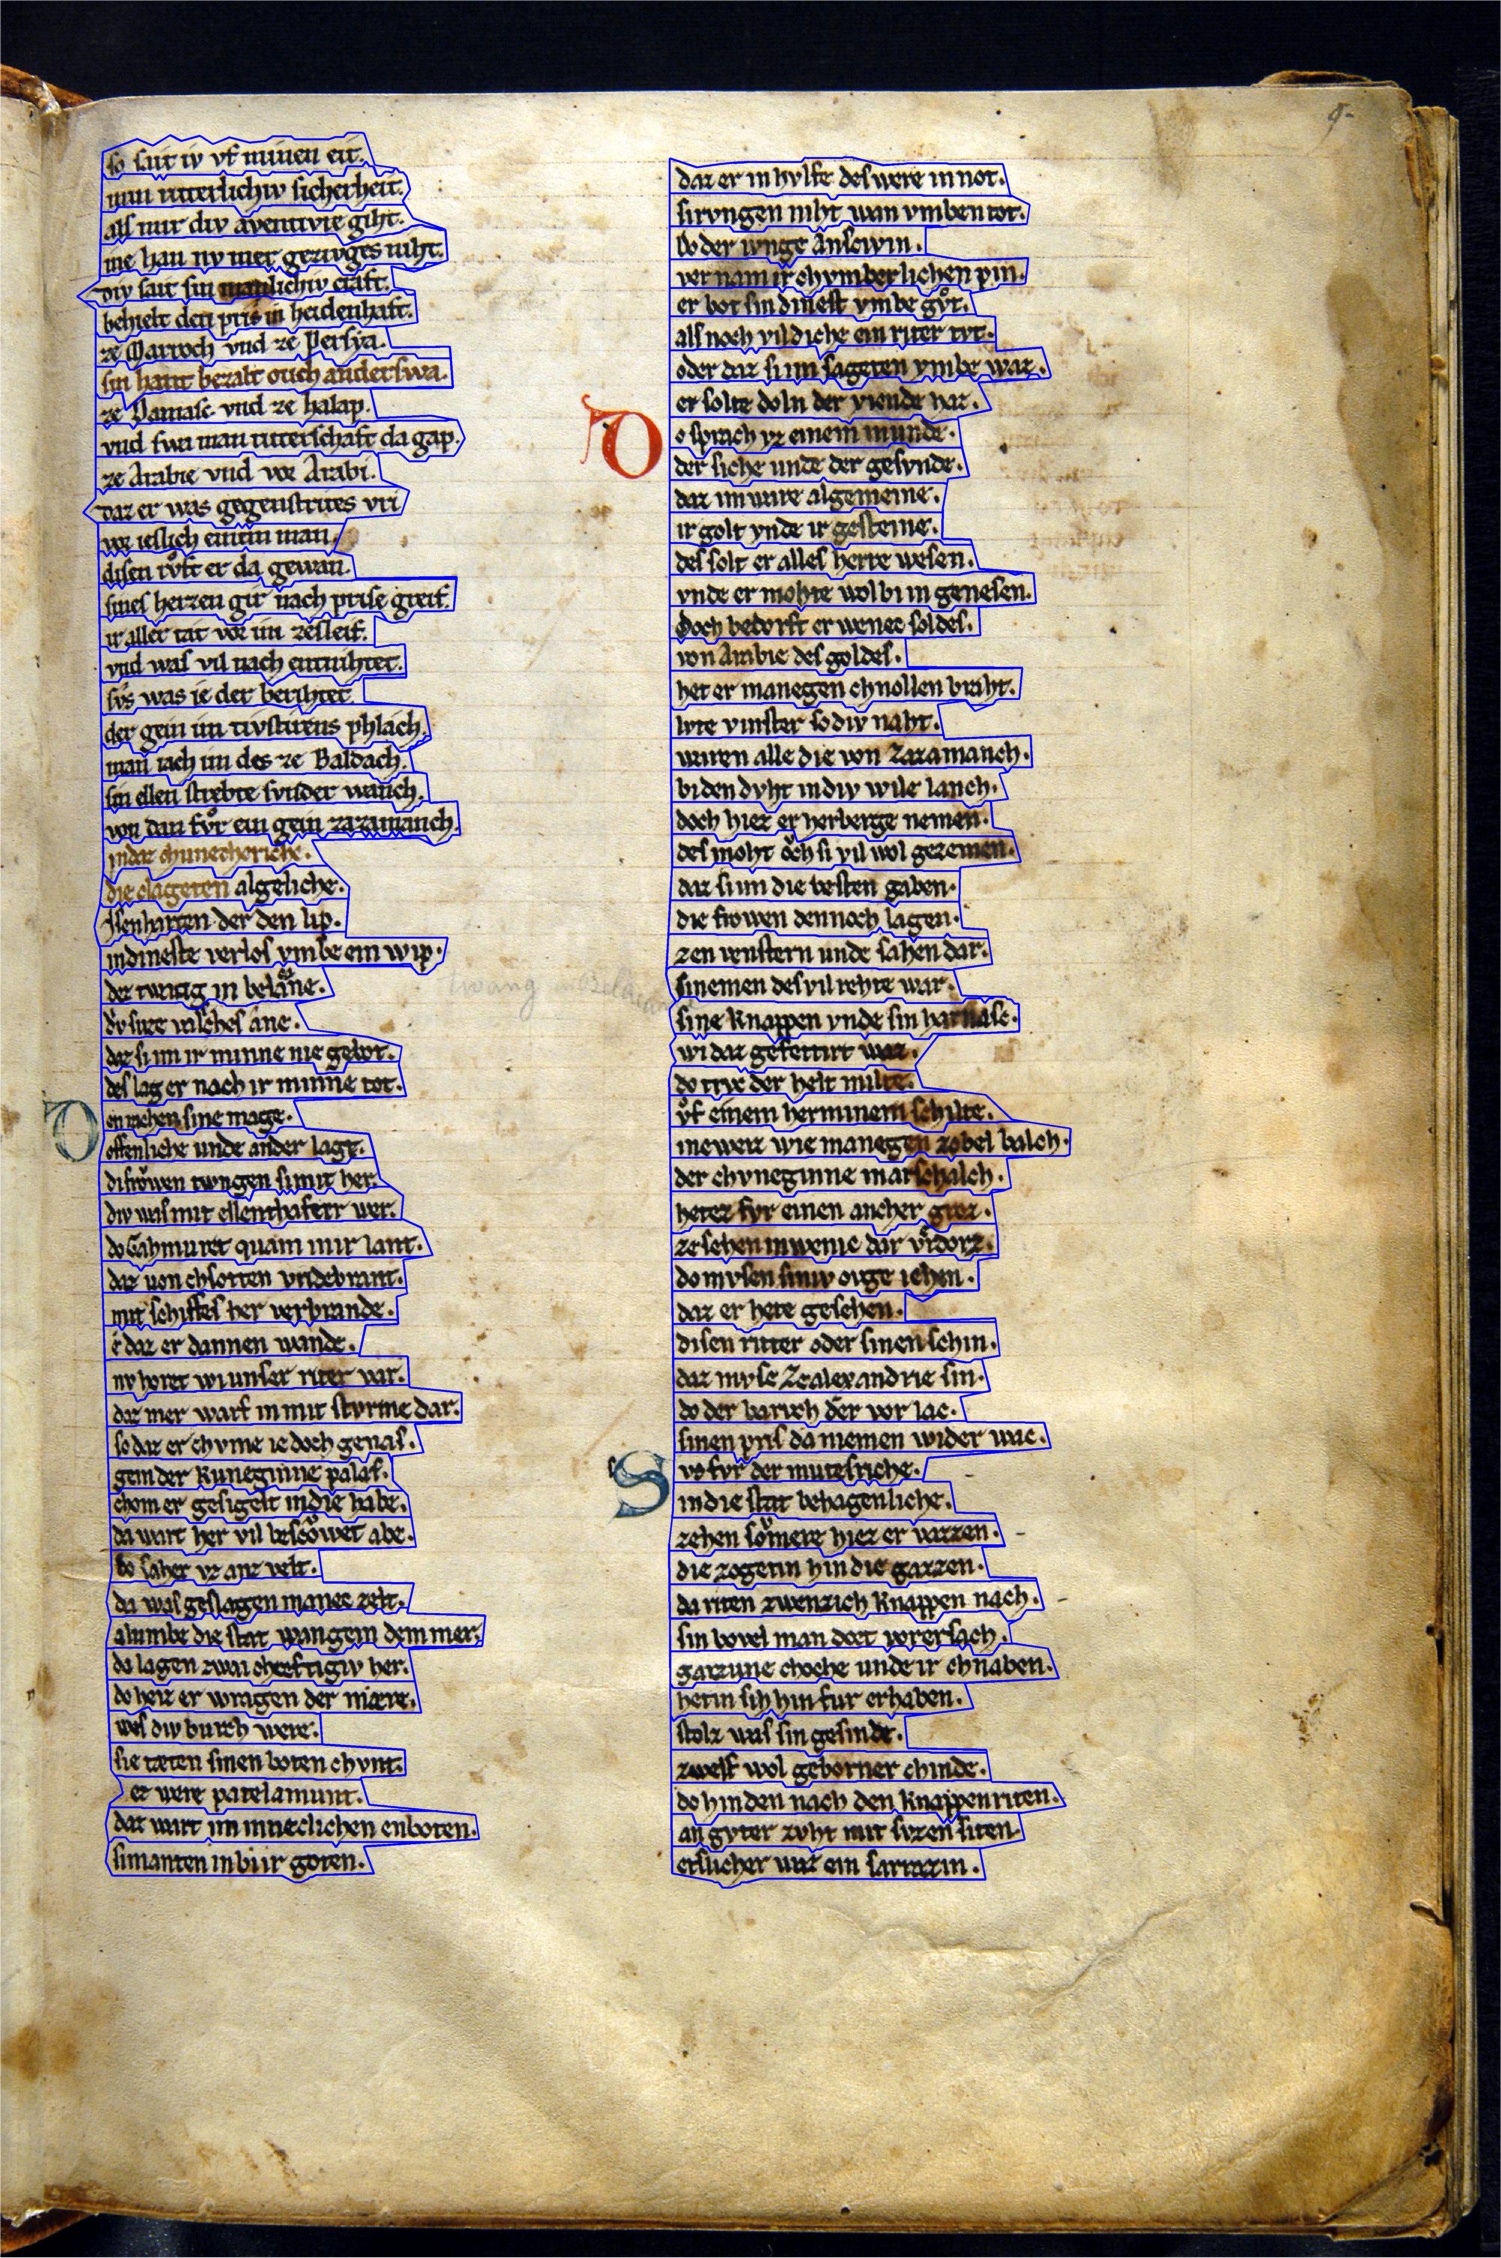 so sait iv vf minen eit.
min ritterlichiv sicherheit.
als mir div aventivre giht.
ine han nv mer gezivges niht.
div sait sin manlichiv craft.
behielt den pris in heidenhaft.
ze Marroch vnd ze Persya.
sin hant bezalt ouch anderswa.
ze Damasc vnd ze halap.
vnd swa man ritterschaft da gap.
ze Arabie vnd vor Arabi.
daz er was gegenstrites vri
vor ieslich einem man.
disen rvͦft er da gewan.
sines herzen gir nach prise greif.
ir aller tat vor im zesleif.
vnd was vil nach entnihtet.
svs was ie der berihtet.
der gein im tivstirens phlach.
man iach im des ze Baldach.
sin ellen strebte svnder wanch.
von dan fvͦr ein gein zazamanch.
indaz chunecheriche.
die clageten algeliche.
Jsenharten der den lip.
indineste verlos vmbe ein wip.
des twanig in belacane.
dv suze valsches ane.
daz si im ir minne nie gebot.
des lag er nach ir minne tot.
Den rachen sine mage.
offenliche unde ander lage.
di frowen twngen si mit her.
div was mit ellenthafter wer.
do Gahmuret quam inir lant.
daz von chsotten vridebrant.
mit schiffes her verbrande.
e daz er dannen wande.
nv horet wi unser riter var.
daz mer warf in mit stvrme dar.
so daz er chvme ie doch genas.
gein der kuneginne palas.
chom er gesigelt indie habe.
da wart her vil bescowet abe.
do saher vz anz velt.
da was geslagen manec zelt.
alumbe die stat wan gein dem mer.
do lagen zwai chreftigiv her.
do hiez er vragen der mære.
wes div burch were.
sie tæten sinen boten chvnt.
ez were patelamunt.
daz wart im inneclichen enboten.
si manten in bi ir goten.
daz er in hvlfe des were in not.
si rvngen niht wan vmben tot.
Do der ivnge Anscivin.
ver nam ir chvmberlichen pin.
er bot sin dinest vmbe gvͦt.
als noch vil diche ein riter tvt.
oder daz si im sageten vmbe waz.
er solte doln der viende haz.
Do sprach vz einem munde.
der siche unde der gesvnde.
daz im were algemeine.
ir golt vnde ir gesteine.
des solt er alles herre wesen.
vnde er mohte wol bi in genesen.
Doch bedorft er wenec soldes.
von Arabie des goldes.
het er manegen chnollen braht.
lvte vinster so div naht.
wuren alle die von Zazamanch.
bi den dvht in div wile lanch.
doch hiez er herberge nemen.
des moht oͮch si vil wol gezemen.
daz si im die besten gaben.
die frowen dennoch lagen.
zen venstern unde sahen dar.
si nemen des vil rehte war.
sine knappen vnde sin harnasc.
wi daz gefeitirt waz.
do trvc der helt milte.
vͦf einem herminem schilte.
ine weiz wie manegen zobel balch.
der chvneginne marschalch.
hetez fvr einen ancher groz.
ze sehen in wenic dar verdorz.
do mvsen siniv ovge iehen.
daz er hete gesehen.
disen ritter oder sinen schin.
daz mvse Ze alexandrie sin.
do der baruch der vor lac.
sinen pris da niemen wider wac.
Svs fvr der mutesriche.
in die stat behagenliche.
zehen soͮmere hiez er vazzen.
die zogetin hin die gazzen.
da riten zwenzich knappen nach.
sin bovel man dort vorersach.
garzune choche unde ir chnaben.
hetin sih hin fur erhaben.
stolz was sin gesinde.
zwelf wol geborner chinde.
do hinden nach den knappen riten.
an gvter zvht mit svzen siten.
etslicher waz ein sarrazin.